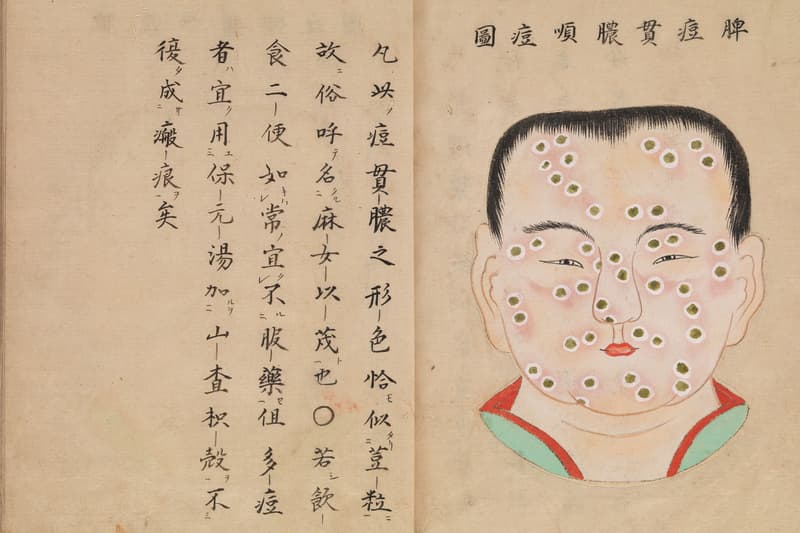 脾痘貫膿順痘圖
凡此痘貫膿之形色恰似荳粒
故俗呼名麻女以茂也〇若飲
食二便如常宜不服藥但多痘
者宜用保元湯加山査枳殼不
後成瘢痕矣